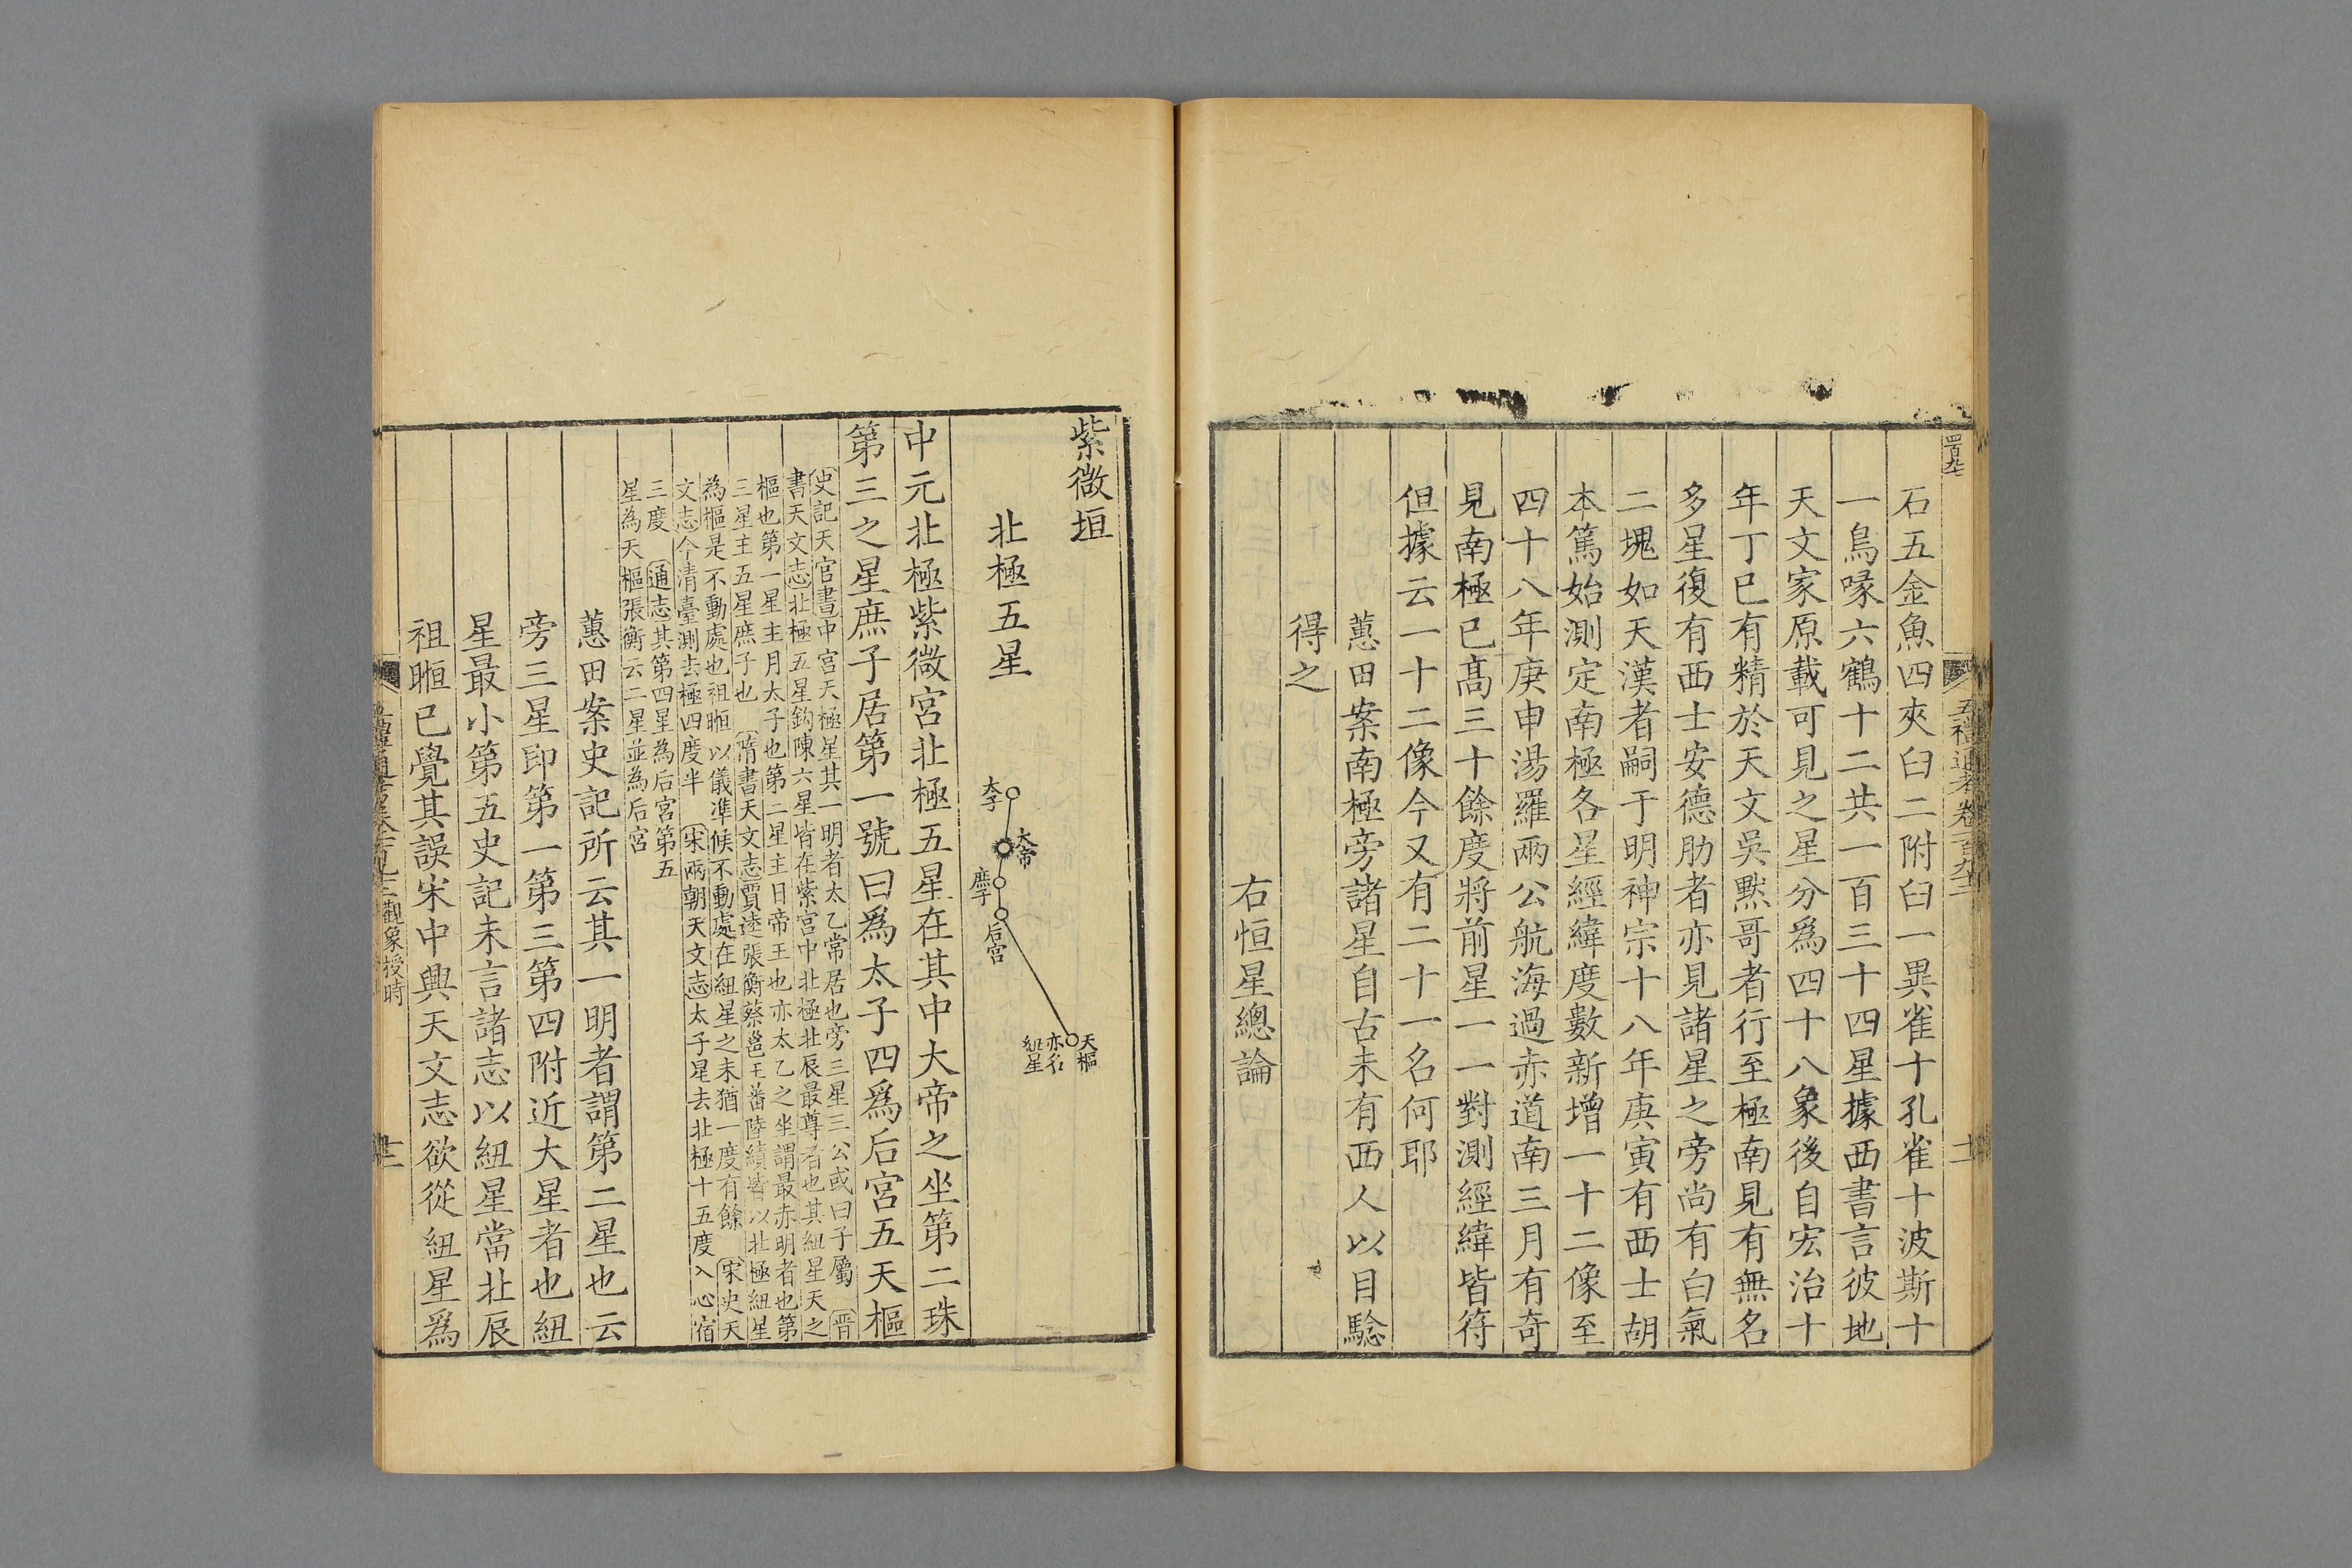 石五金魚四夾臼二附臼一異雀十孔雀十波斯十
一鳥喙六鶴十二共一百三十四星據西書言彼地
天文家原載可見之星分爲四十八象後自宏治十
年丁巳有精於天文吳黙哥者行至極南見有無名
多星復有西士安德肋者亦見諸星之旁尚有白氣
二塊如天漢者嗣于明神宗十八年庚寅有西士胡
本篤始測定南極各星經緯度數新增一十二像至
四十八年庚申湯羅兩公航海過赤道南三月有奇
見南極已高三十餘度將前星一一對測經緯皆符
但據云一十二像今又有二十一名何耶
蕙田案南極旁諸星自古未有西人以目騐
得之
右恒星總論
紫微垣
北極五星
太子
大帝
庶子
后宫
天樞
亦名
紐星
中元北極紫微宮北極五星在其中大帝之坐第二珠
第三之星庶子居第一號曰爲太子四爲后宮五天樞
史記天官書中宮天極星其一明者太乙常居也旁三星三公或曰子屬 晉
書天文志北極五星鈎陳六星皆在紫宮中北極北辰最尊者也其紐星天之
樞也第一星主月太子也第二星主日帝王也亦太乙之坐謂最赤明者也第
三星主五星庶子也 隋書天文志賈逵張衡蔡邕王蕃陸績皆以北極紐星
為樞是不動處也祖暅以儀準候不動處在紐星之末猶一度有餘 宋史天
文志今清臺測去極四度半 宋兩朝天文志太子星去北極十五度入心宿
三度 通志其第四星為后宮第五
星為天樞張衡云二星並為后宮
蕙田案史記所云其一明者謂第二星也云
旁三星卽第一第三第四附近大星者也紐
星最小第五史記未言諸志以紐星當北辰
祖暅已覺其誤宋中興天文志欲從紐星爲
五禮通考卷一百九十二
觀象授時